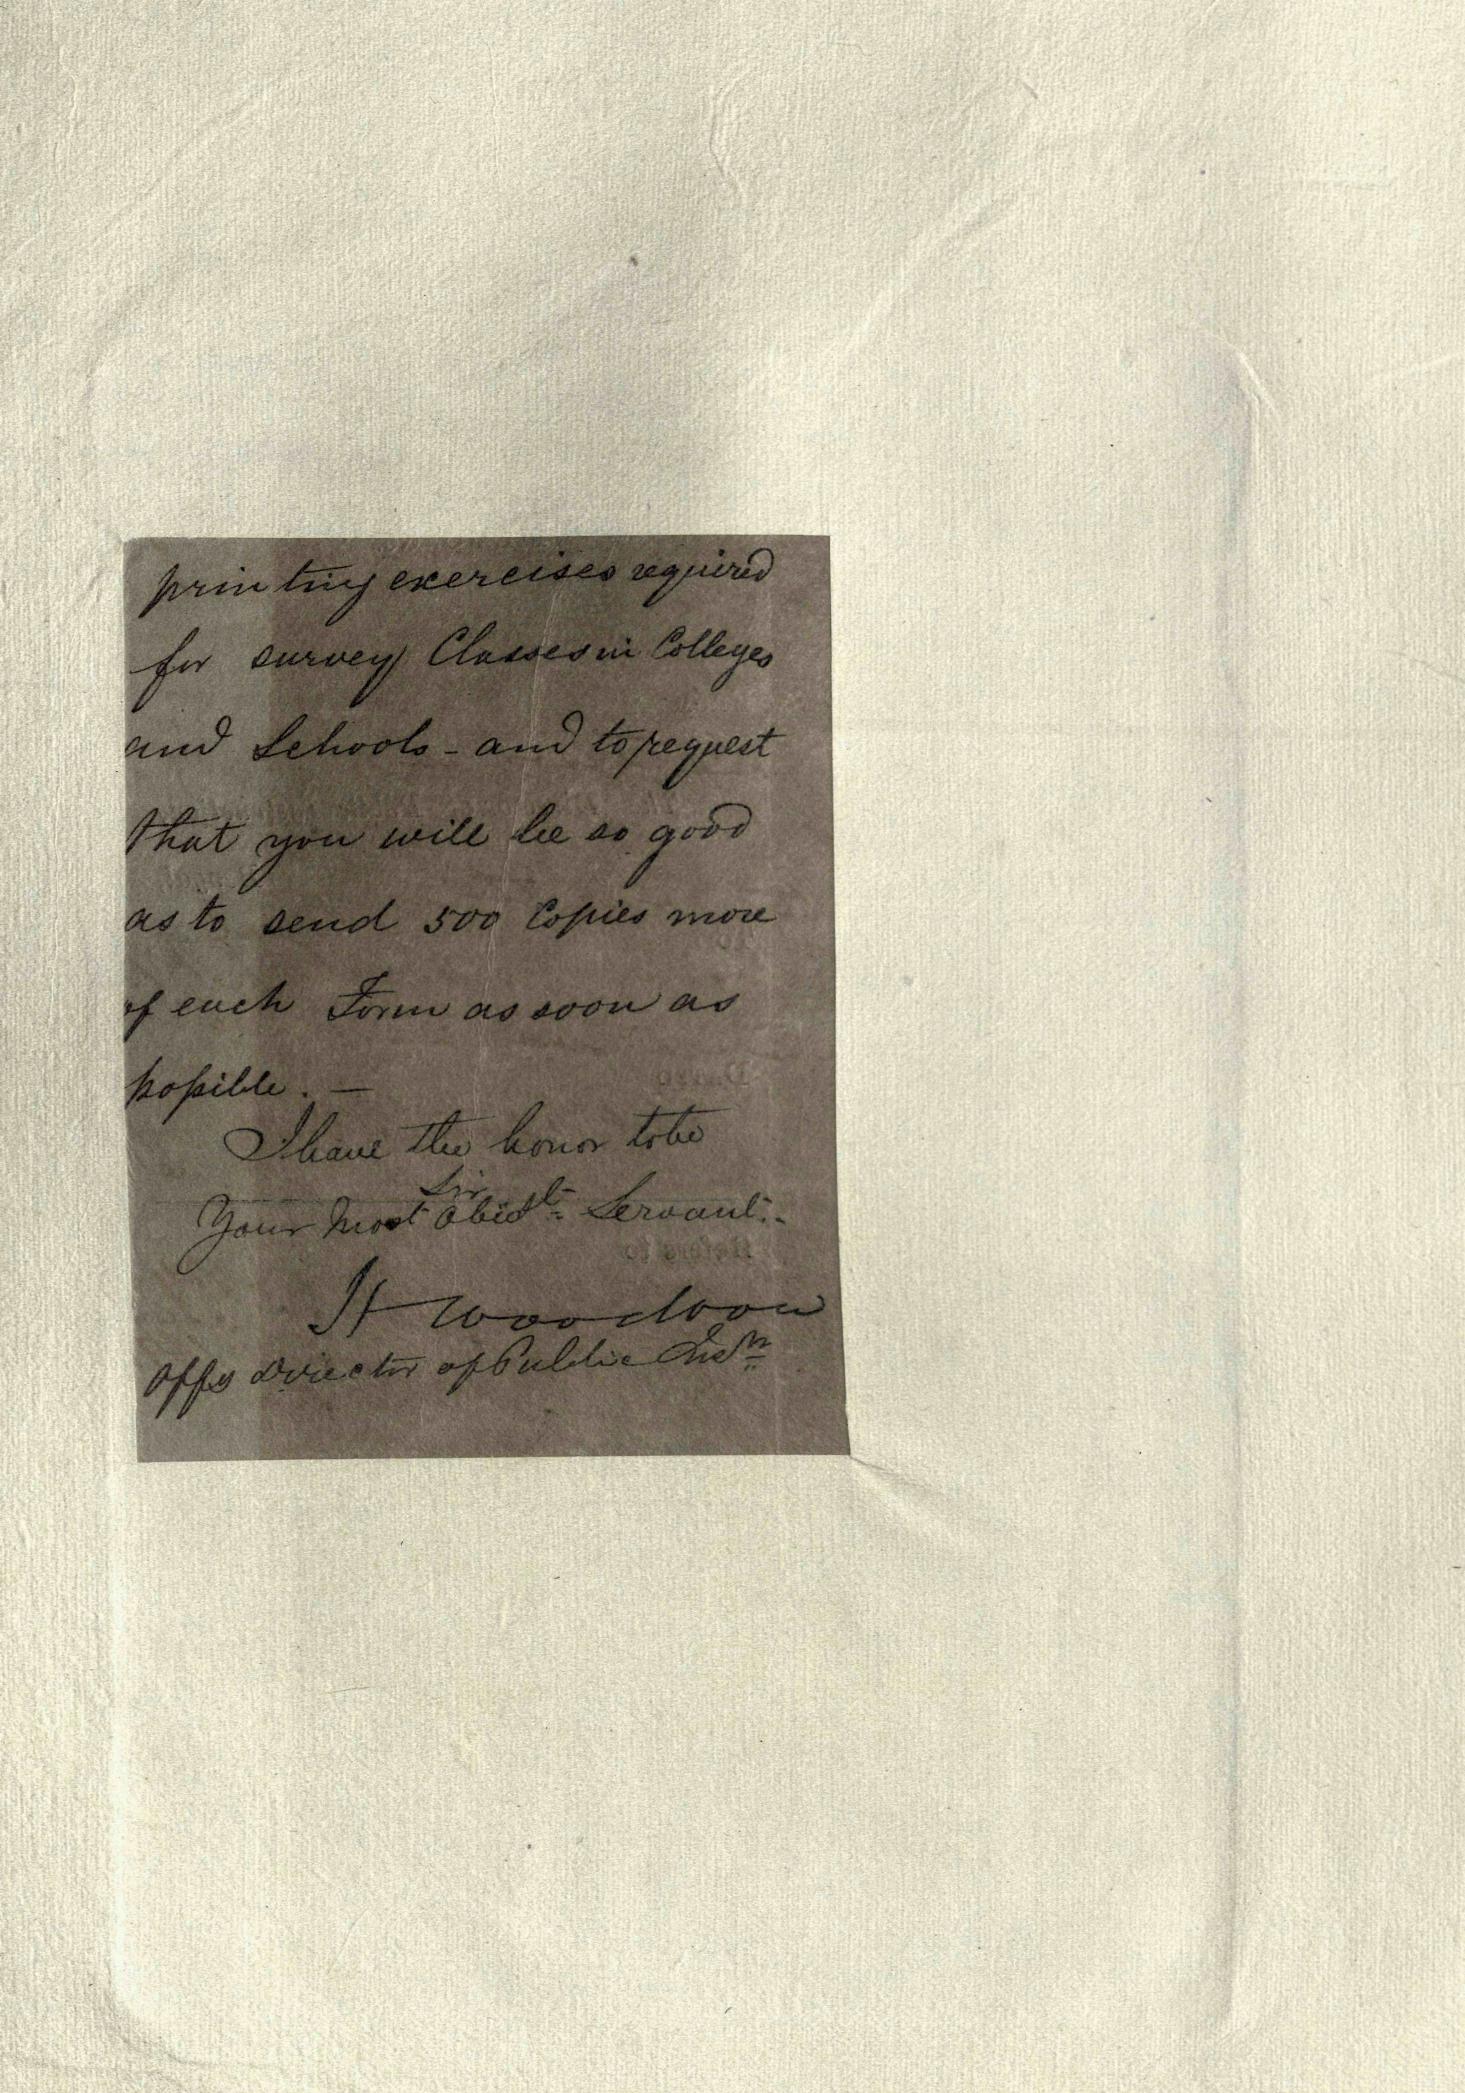 printing exercises required
for survey Classes in Colleges
and Schools - and to request
that you will be so good
as to send 500 Copies more
of each Form as soon as
possible. —
I have the honor to be
Sir
Your most Obedt. Servant.-
H Woodrow
Offg Director of Public Insn